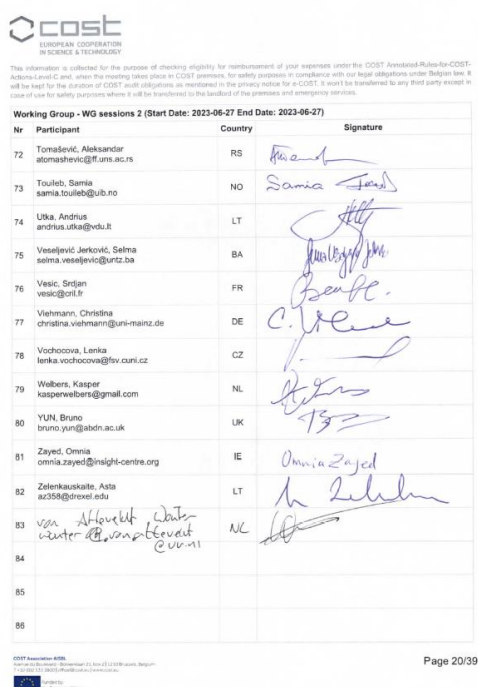 cost
EUROPEAN COOPERATION
IN SCIENCE & TECHNOLOGY
This information is collected for the purpose of checking eligibility for reimbursement of your expenses under the COST Annotated-Rules-for-COST-
Actions-Level-C and, when the meeting takes place in COST premises, for safety purposes in compliance with our legal obligations under Belgian law. It
will be kept for the duration of COST audit obligations as mentioned in the privacy notice for e-COST. It won't be transferred to any third party except in
case of use for safety purposes where it will be transferred to the landlord of the premises and emergency services.
Working Group - WG sessions 2 (Start Date: 2023-06-27 End Date: 2023-06-27)
Nr Participant Country Signature
72 Tomašević, Aleksandar RS
atomashevic@ff.uns.ac.rs
73 Touileb, Samia NO Samia
samia.touileb@uib.no
74 Utka, Andrius LT
andrius.utka@vdu.lt
75 Veseljević Jerković, Selma BA
selma.veseljevic@untz.ba
76 Vesic, Srdjan FR
vesic@cril.fr
77 Viehmann, Christina DE
christina.viehmann@uni-mainz.de
78 Vochocova, Lenka CZ
lenka.vochocova@fsv.cuni.cz
79 Welbers, Kasper NL
kasperwelbers@gmail.com
80 YUN, Bruno UK
bruno.yun@abdn.ac.uk
81 Zayed, Omnia IE Omnia Zayed
omnia.zayed@insight-centre.org
82 Zelenkauskaite, Asta LT
az358@drexel.edu
83 van Atteveldt Wouter NL
84
85
86
COST Association AISBL
Page 20/39
Funded by